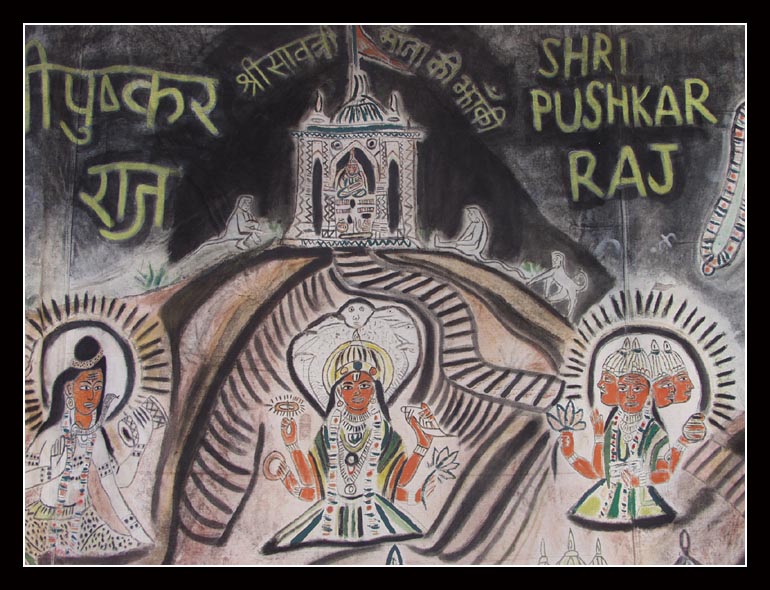 श्री पुष्कर
राज
श्री सावत्री माँता की झाँकी
SHRI
PUSHKAR
RAJ